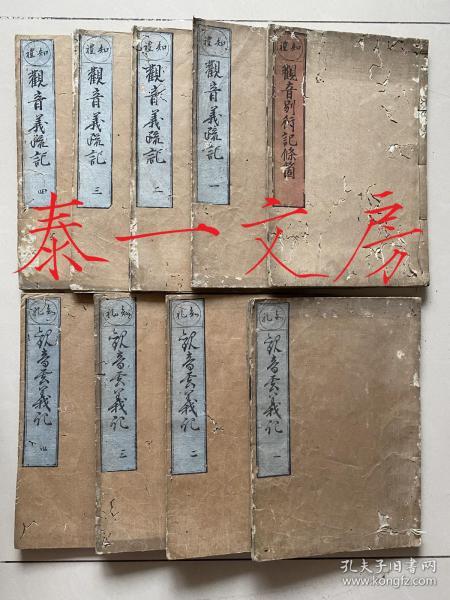 知禮
觀音別行記條箇
知禮
觀音義疏記
一
知禮
觀音義疏記
二
知禮
觀音義疏記
三
知禮
觀音義疏記
四
泰一文房
知礼
觀音玄義記
一
知礼
觀音玄義記
二
知礼
觀音玄義記
三
知礼
觀音玄義記
四
孔夫子旧书网
www.kongfz.com